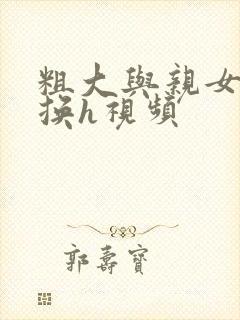 粗大與親女
換h視頻
郭壽寶